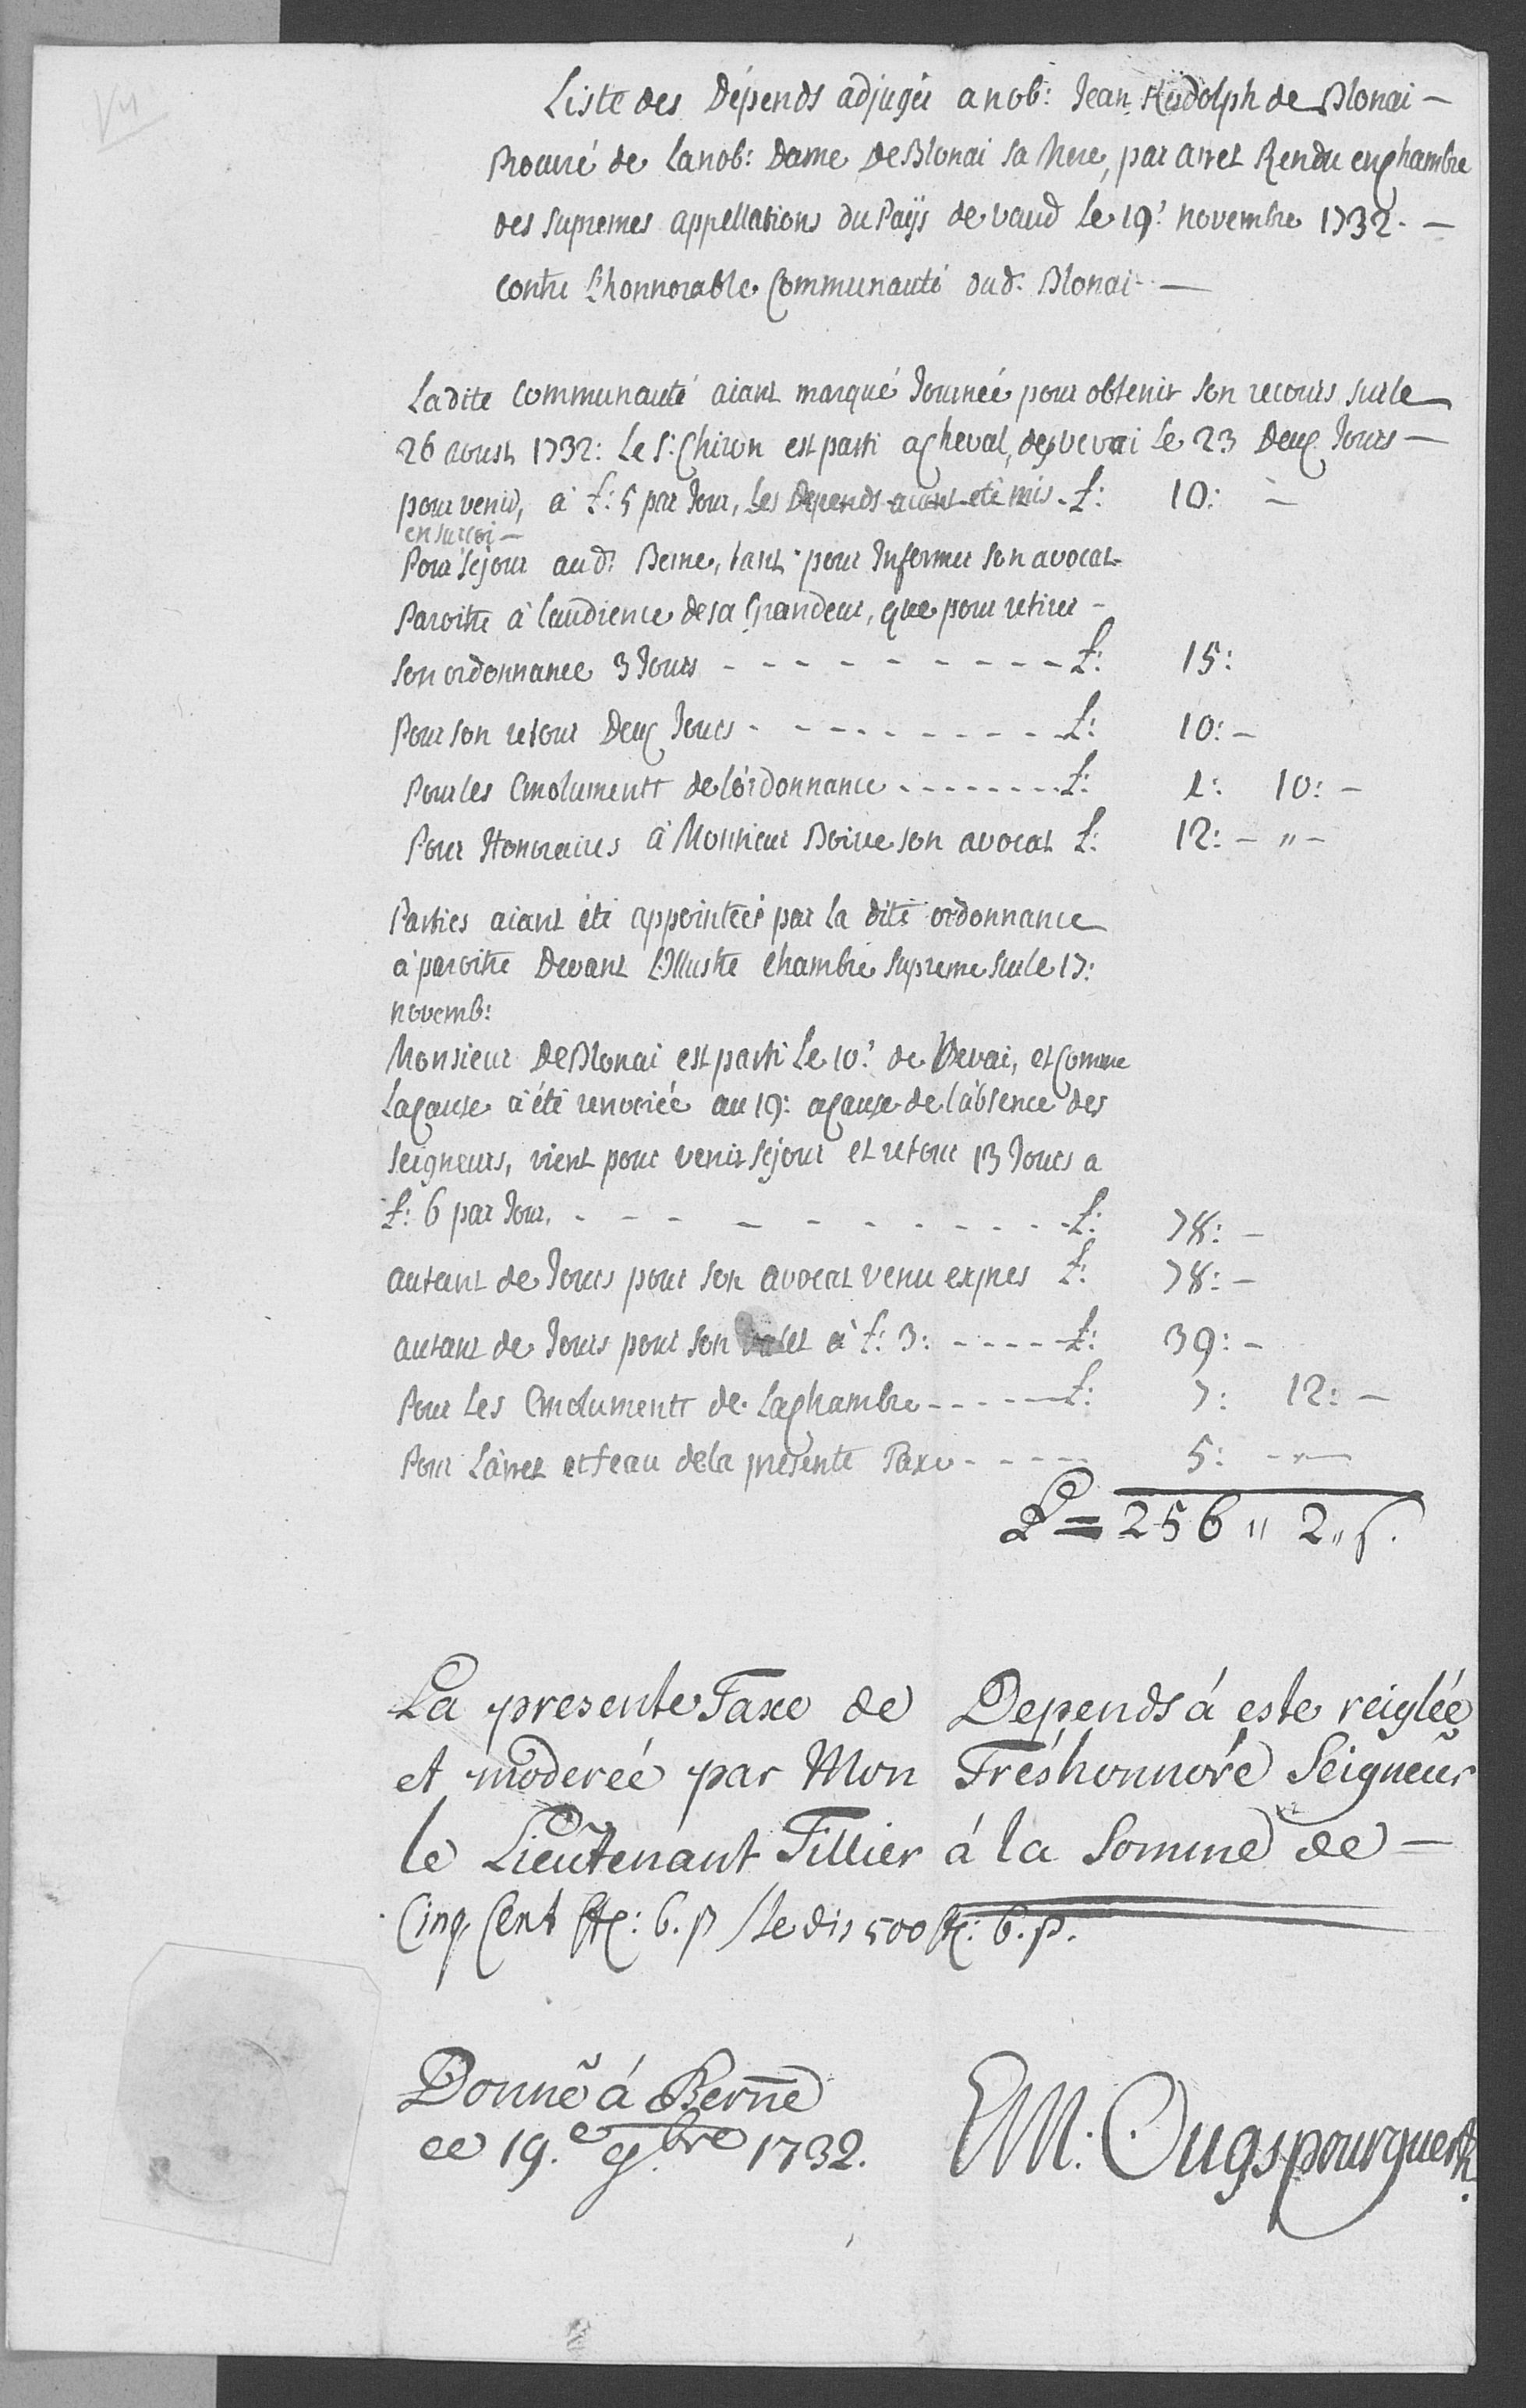 Liste des Dépends adjugée a nob: Jean Rudolph de Blonai —
Procuré de la nob: Dame De Blonai sa Mere, par arret Rendu en chambre
des supremes appellations du Païs de vaud le 19: novembre 1732. —
contre L'honnorable Communauté dud: Blonai —
Ladite Communauté aiant marqué Journée pour obtenir son recours sur le
26 aoust 1732: Le Sr: Chiron est parti a cheval, de vevai le 23 Deux Jours —
pour venir, à £: 5 par Jour, les Depends aiant eté mis £: 10: —
en surcoi —
Pour séjour aud: Berne, tant pour Informer son avocat
Paroitre à l'audience de sa Grandeur, que pour retirer -
son ordonnance 3 Jours - - - - - - - - - £: 15:
Pour son retour Deux Jours - - - - - - - - - £: 10: -
Pour les Emoluments de l'ordonnance - - - - - - - £: 1: 10: -
Pour Honoraires à Monsieur Boive son avocat £: 12: - " -
Parties aiant été appointées par la dite ordonnance
à paroitre Devant L'Illustre Chambre Supreme sur le 17:
novemb:
Monsieur De Blonai est parti Le 10: de Vevai, et Comme
La cause a été renvoiée au 19: a cause de l'absence des
seigneurs, vient pour venir séjour et retour 13 Jours a
£: 6 par Jour. - - - - - - - - - - £: 78: -
autant de Jours pour son avocat venu expres £: 78: -
autant de Jours pour son valet à £: 3: - - - - £: 39: -
Pour Les Emoluments de La chambre - - - - - £: 7: 12: -
Pour L'arret et seau de la presente Taxe - - - - - 5: - " -
L = 256 " 2 " s.
La presente Taxe de Depends á este reiglée
et moderée par Mon Tréshonnoré Seigneur
le Lieutenant Tillier á la Somme de —
Cinq Cent ff: 6. p / le dis 500 ff: 6. p.
Donné á Berne
ce 19.e 9.bre 1732.
EM: Ougspourguer